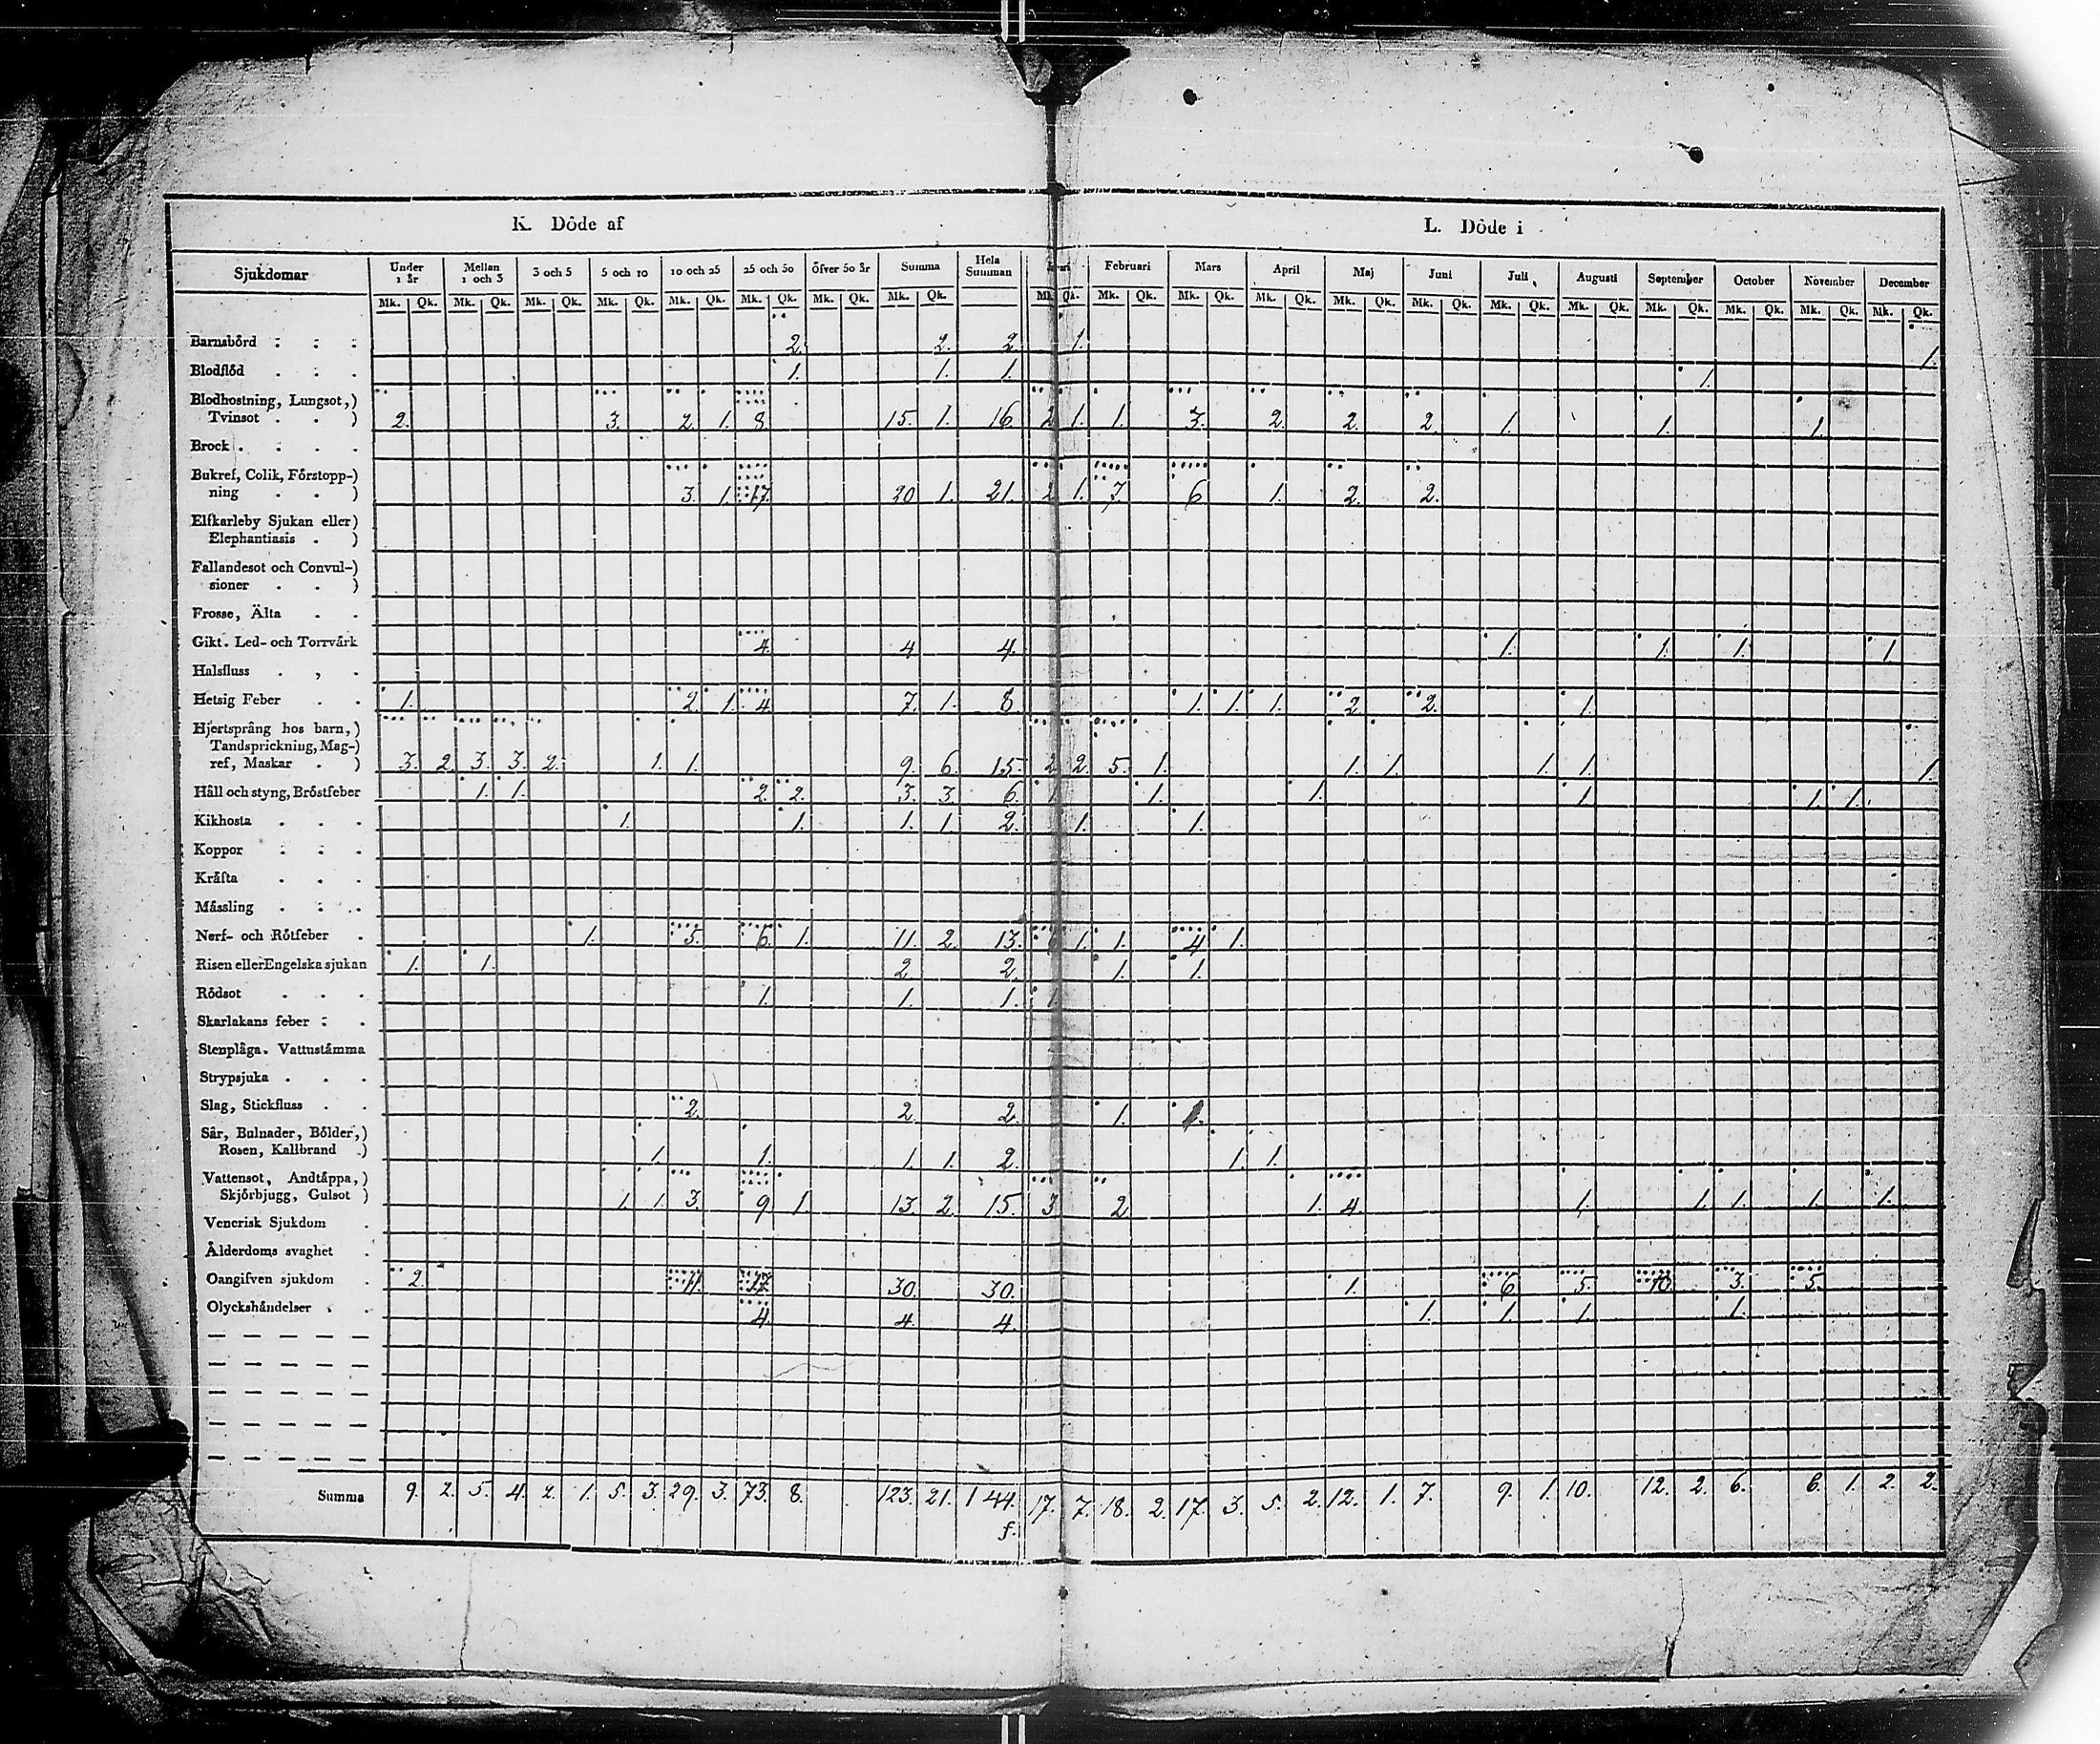 K. Döde af L. Döde i
Sjukdomar Under 1 år Mellan 1 och 3 3 och 5 5 och 10 10 och 25 25 och 50 Öfver 50 år Summa Hela Summan Februari Mars April Maj Juni Juli Augusti September October November December
Mk. Qk. Mk. Qk. Mk. Qk. Mk. Qk. Mk. Qk. Mk. Qk. Mk. Qk. Mk. Qk. Mk. Qk. Mk. Qk. Mk. Qk. Mk. Qk. Mk. Qk. Mk. Qk. Mk. Qk. Mk. Qk. Mk. Qk. Mk. Qk. Mk. Qk. Mk. Qk.
Barnsbörd 2. 2. 2. 1. 1.
Blodflöd 1. 1. 1. 1.
Blodhostning, Lungsot,)
Tvinsot ) 2. 3. 2. 1. 8. 15. 1. 16. 2 1. 1. 3. 2. 2. 2. 1. 1. 1.
Brock
Bukref, Colik, Förstopp-)
ning ) 3. 1. 17. 20 1. 21. 2 1. 7. 6 1. 2. 2.
Elfkarleby Sjukan eller)
Elephantiasis )
Fallandesot och Convul-)
sioner )
Frosse, Älta
Gikt. Led- och Torrvärk 4. 4 4. 1. 1. 1. 1.
Halsfluss
Hetsig Feber 1. 2. 1. 4. 7. 1. 8 1. 1. 1. 2. 2. 1.
Hjertsprång hos barn,)
Tandsprickning, Mag-)
ref, Maskar ) 3. 2. 3. 3. 2. 1. 1. 9. 6. 15. 2 2. 5. 1. 1. 1. 1. 1. 1.
Håll och styng, Bröstfeber 1. 1. 2. 2. 3. 3. 6. 1 1. 1. 1. 1. 1.
Kikhosta 1. 1. 1. 1. 2. 1. 1.
Koppor
Kräfta
Mässling
Nerf- och Rötfeber 1. 5. 6. 1. 11. 2. 13. 1. 1. 4 1.
Risen eller Engelska sjukan 1. 1. 2 2. 1. 1.
Rödsot 1. 1. 1. 1
Skarlakans feber
Stenplåga. Vattustämma
Strypsjuka
Slag, Stickfluss 2. 2. 2. 1. 1.
Sår, Bulnader, Bölder,)
Rosen, Kallbrand ) 1. 1. 1. 1. 2. 1. 1.
Vattensot, Andtäppa,)
Skjörbjugg, Gulsot ) 1. 1. 3. 9 1 13. 2. 15. 3 2 1. 4. 1. 1. 1. 1. 1.
Venerisk Sjukdom
Ålderdoms svaghet
Oangifven sjukdom 2. 11. 17. 30. 30. 1. 6. 5. 10. 3. 5.
Olyckshändelser 4. 4. 4. 1. 1. 1. 1.
Summa 9. 2. 5. 4. 2. 1. 5. 3. 29. 3. 73. 8. 123. 21. 144. 17. 7. 18. 2. 17. 3. 5. 2. 12. 1. 7. 9. 1. 10. 12. 2. 6. 6. 1. 2. 2.
f.